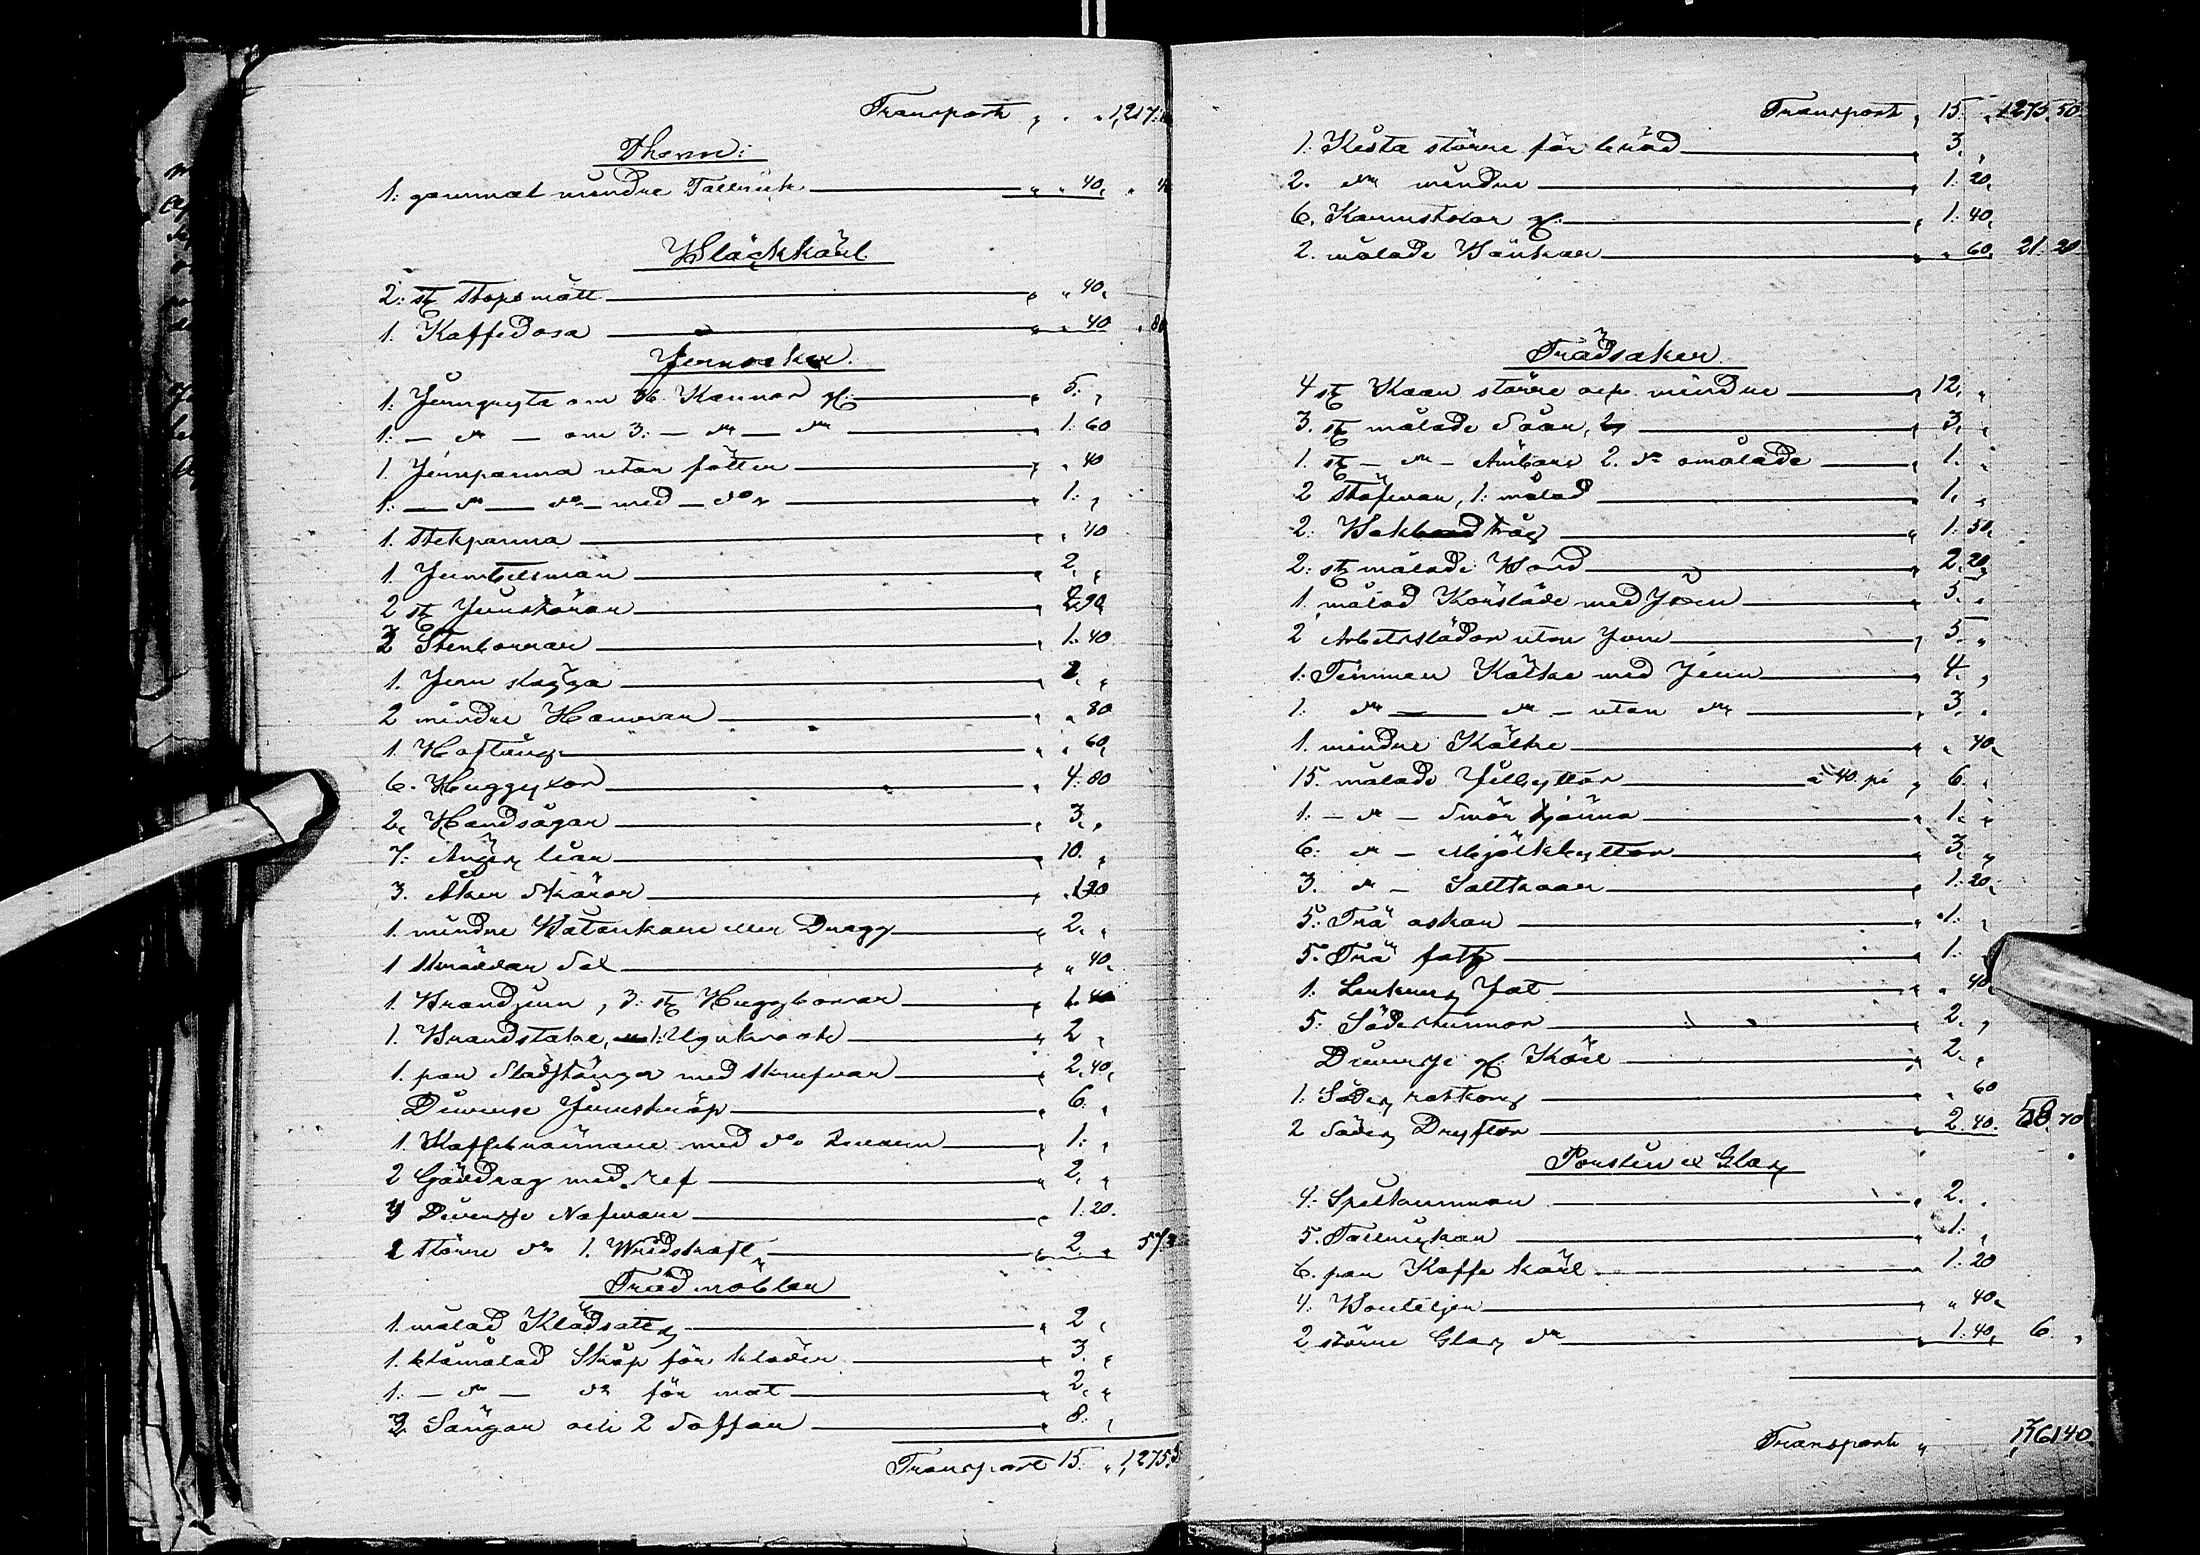 Transport " " " 1,217:
Thenn:
1: gammal mindre Tallrick " " 40, " 4
Bläckkäril.
2: st Stopsmått " " 40,
1. Kaffedosa " " 40 " 80
Jernsaker.
1: Jerngryta om 16 Kannor gl: " 5. "
1: — do — om 3: — do — do " 1. 60
1. Jernpanna utan fötter " " 40
1: — do — do — med — do " 1: "
1. Stekpanna " " 40
1 Jernbilsman " 2, "
2 st Jernstörar " 2 90
2 Stenborrar " 1: 40
1. Jern slägga " 2. "
2 mindre Hamrar " " 80
1 Hoftång " " 60,
6. Huggyxor " 4: 80
2. Handsågar " 3. "
7: Ängs liar " 10. "
3. Åker Skäror " 1 20
1. mindre Båtankare eller Dragg " 2. "
1 Skräddar Sax " " 40,
1 Brandjern, 3: st Huggborrar " 1. 40
1. Brandstake, 1: Ugnkrook " 2 "
1. par Städstänger med Skrufvar " 2, 40,
Diverse Jernskräp " 6. "
1. Kaffebrännare med do " 1: "
2 Gäddrag med ref " 2, "
4 Diverse Nafvare " 1. 20.
2 större do 1. Wridskaft " 2 " 57
Träd möbler
1. målad Klädsate " 2 "
1. blåmålad Skåp för kläder " 3. "
1: — do — do för mat " 2, "
2 Sängar och 2 Soffor " 8: "
Transport 15. " 1,275,5
Transport " 15. " 1275,50
1. Kista större för bröd " 3. "
2. do mindre " 1. 20,
6. Karmstolar gl. " 1. 40,
2. målade Bänkar " " 60, 21. 20
Trädsaker
4 st Kaar större och mindre " 12, "
3. st målade Såar, " 3, "
1. st — do — Ämbare 2. do omålade " 1. "
2 Stäfvor, 1: målad " 1, "
2. Baktråg " 1. 50,
2: st målade Bord " 2. 20,
1 målad Körsläde med Jern " 5. "
2 Arbetsslädor utan Jern " 5. "
1: Timmer Kälke med Jern " 4. "
1: do — do — utan do " 3. "
1. mindre Kälke " " 40,
15. målade filbyttor à 40. pi " 6. "
1: — do — Smör kjärna " 1. "
6: do — Mjölkbyttor " 3, "
3. do — Saltkaar " 1. 20,
5: Trä askar " 1: "
5. Trä fat " 1. "
1: Fat " " 40,
5: Södestunnor " 2. "
Diverse gl Käril " 2. "
1. Södes raskorg " " 60
2 Södes Dryftor " 2. 40. 58. 70
Porslin & Glas
4: Spilkummar " 2. "
5. Tallrickar " 1: "
6. par Kaffe käril " 1. 20
4. Bouteljer " " 40,
2 större Glas do " 1. 40, 6. "
Transport " 1,361 40.